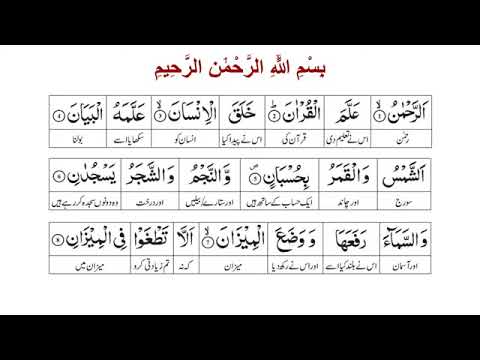 بِسْمِ اللهِ الرَّحْمٰنِ الرَّحِيمِ
اَلرَّحْمٰنُ ۙ۱ عَلَّمَ الْقُرْاٰنَ ؕ۲ خَلَقَ الْاِنْسَانَ ۙ۳ عَلَّمَهُ الْبَيَانَ ۴
رحمٰن اس نے تعلیم دی قرآن کی اس نے پیدا کیا انسان کو سکھایا اسے بولنا
اَلشَّمْسُ وَالْقَمَرُ بِحُسْبَانٍ ۪۵ وَّالنَّجْمُ وَالشَّجَرُ يَسْجُدٰنِ ۶
سورج اور چاند ایک حساب کے ساتھ ہیں اور ستارے/بیلیں اور درخت وہ دونوں سجدہ کر رہے ہیں
وَالسَّمَآءَ رَفَعَهَا وَوَضَعَ الْمِيْزَانَ ۙ۷ اَلَّا تَطْغَوْا فِى الْمِيْزَانِ ۸
اور آسمان اس نے بلند کیا اسے اور اس نے رکھ دیا میزان کہ نہ تم زیادتی کرو میزان میں